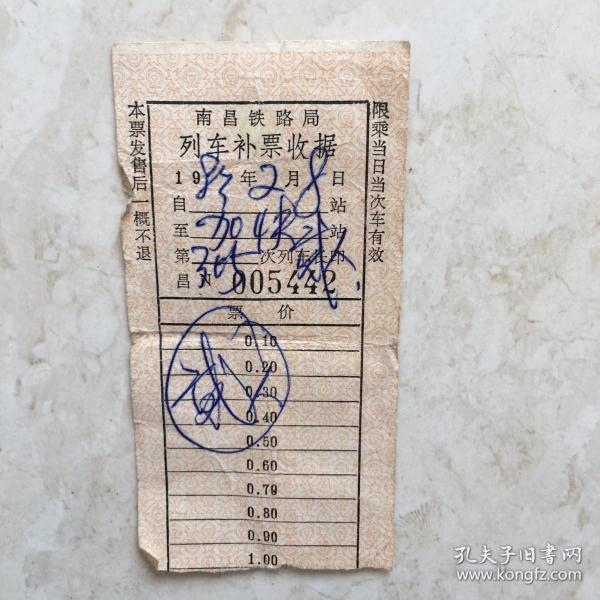 南昌铁路局
列车补票收据
19 年2月8日
自 站
至 加快 站
第 次列车长印
昌N 005442
票 价
0.10
0.20
0.30
0.40
0.50
0.60
0.70
0.80
0.90
1.00
本票发售后一概不退
限乘当日当次车有效
孔夫子旧书网
www.kongfz.com